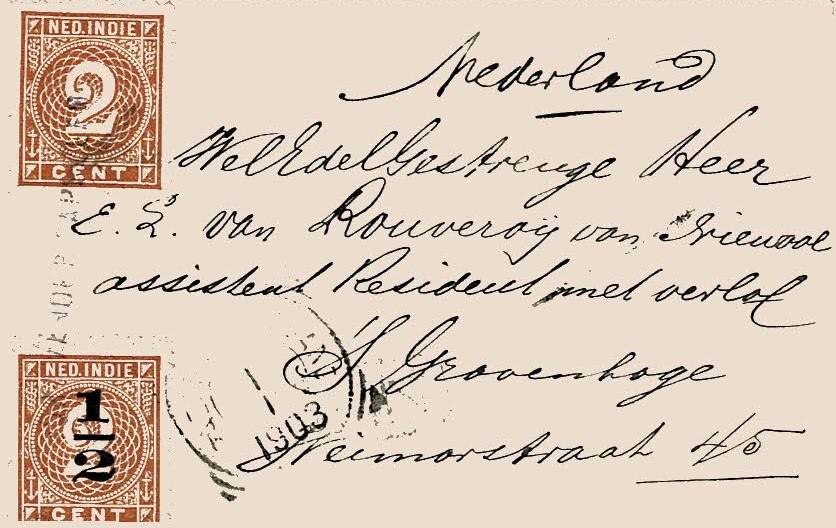 NED. INDIE
2
CENT
Nederland
WelEdelGestrenge Heer
E. L. van Rouveroij van Nieuwal
assistent Resident met verlof
'S Gravenhage
Weimarstraat 45
1903
NED. INDIE
1/2
CENT